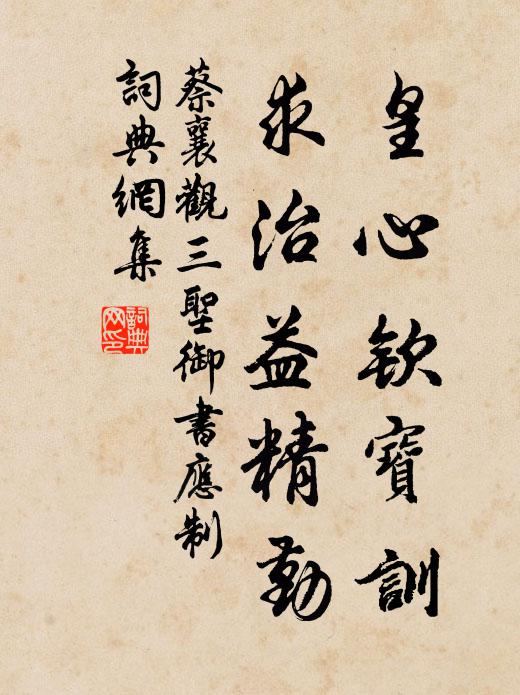 皇心欽寶訓
求治益精勤
蔡襄觀三聖御書應制
詞典網集
詞典网印